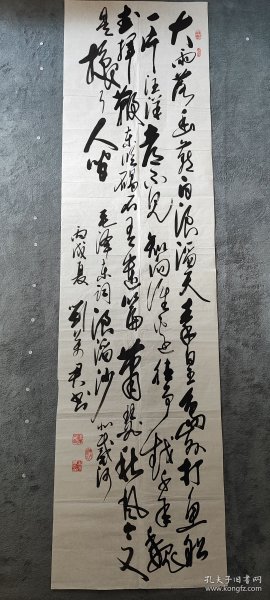 大雨落幽燕白浪滔天秦皇岛外打鱼船
一片汪洋都不见知向谁边往事越千年魏
武挥鞭东临碣石有遗篇萧瑟秋风今又
是换了人间 毛泽东词浪淘沙 北戴河
丙戌夏 劉君书